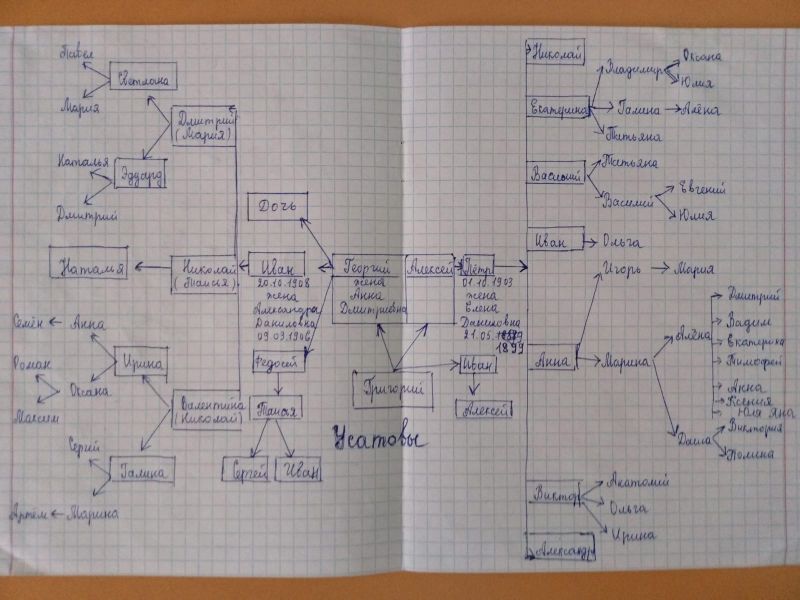 Павел
Светлана
Мария
Дмитрий
(Мария)
Наталья
Эдуард
Дмитрий
Дочь
Наталья
Николай
(Таисия)
Иван
20.10.1908
жена
Александра
Даниловна
09.03.1906
Георгий
жена
Анна
Дмитриевна
Алексей
Пётр
01.10.1903
жена
Елена
Даниловна
21.05.
1899
Семён
Анна
Ирина
Роман
Оксана
Максим
Валентина
(Николай)
Сергий
Галина
Артём
Марина
Федосей
Таисия
Сергей
Иван
Григорий
Иван
Алексей
Усатовы
Николай
Екатерина
Владимир
Оксана
Юлия
Галина
Алёна
Татьяна
Василий
Татьяна
Василий
Евгений
Юлия
Иван
Ольга
Игорь
Мария
Анна
Марина
Алёна
Дмитрий
Вадим
Екатерина
Тимофей
Анна
Ксения
Юля Яна
Даша
Виктория
Полина
Виктор
Анатолий
Ольга
Ирина
Александр